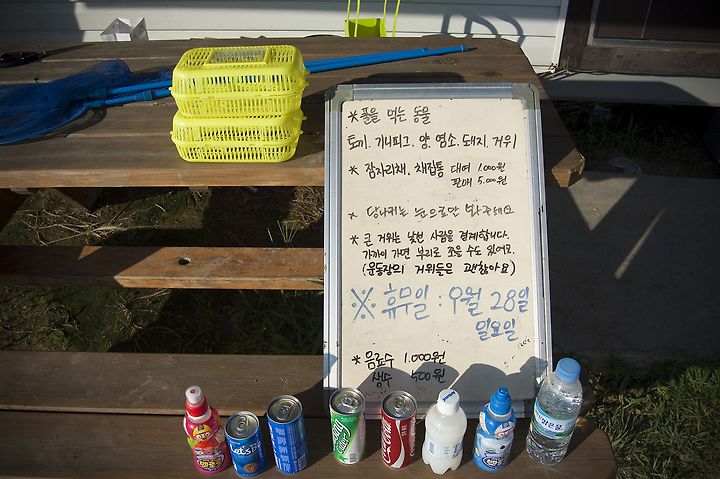 ※ 풀을 먹는 동물
토끼. 기니피그. 양. 염소. 돼지. 거위
* 잠자리채. 채집통 대여 1.000원
판매 5.000원
* 당나귀는 눈으로만 봐주세요
* 큰 거위는 낯선 사람을 경계합니다.
가까이 가면 부리로 쪼을 수도 있어요.
(운동장의 거위들은 괜찮아요)
※ 휴무일 : 9월 28일
일요일
* 음료수 1.000원
생수 500원
Let's Be
Coca-Cola